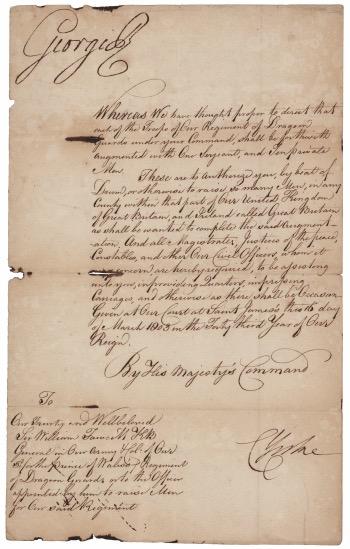 George R
Whereas We have thought proper to direct that
each of the Troops of Our Regiment of Dragoon
Guards under your Command, shall be forthwith
augmented with One Serjeant, and Ten private
Men.
These are to Authorize you, by beat of
Drum, or otherwise to raise so many Men, in any
County within that part of Our United Kingdom
of Great Britain, and Ireland called Great Britain
as shall be wanted to complete the said Augment-
ation. And all Magistrates, Justices of the peace,
Constables, and other Our Civil Officers, whom it
may concern are hereby required, to be assisting
unto you, in providing Quarters, impressing
Carriages, and otherwise as there shall be Occasion
Given at Our Court at Saint James's this day
of March 1803 in the Forty third Year of Our
Reign.
By His Majesty's Command
To
Our Trusty and Wellbeloved
Sir William Fawcett
General in Our Army Col: of Our
or the Prince of Wales's Regiment
of Dragoon Guards, or to the Officer
appointed by him to raise Men
for Our said Regiment